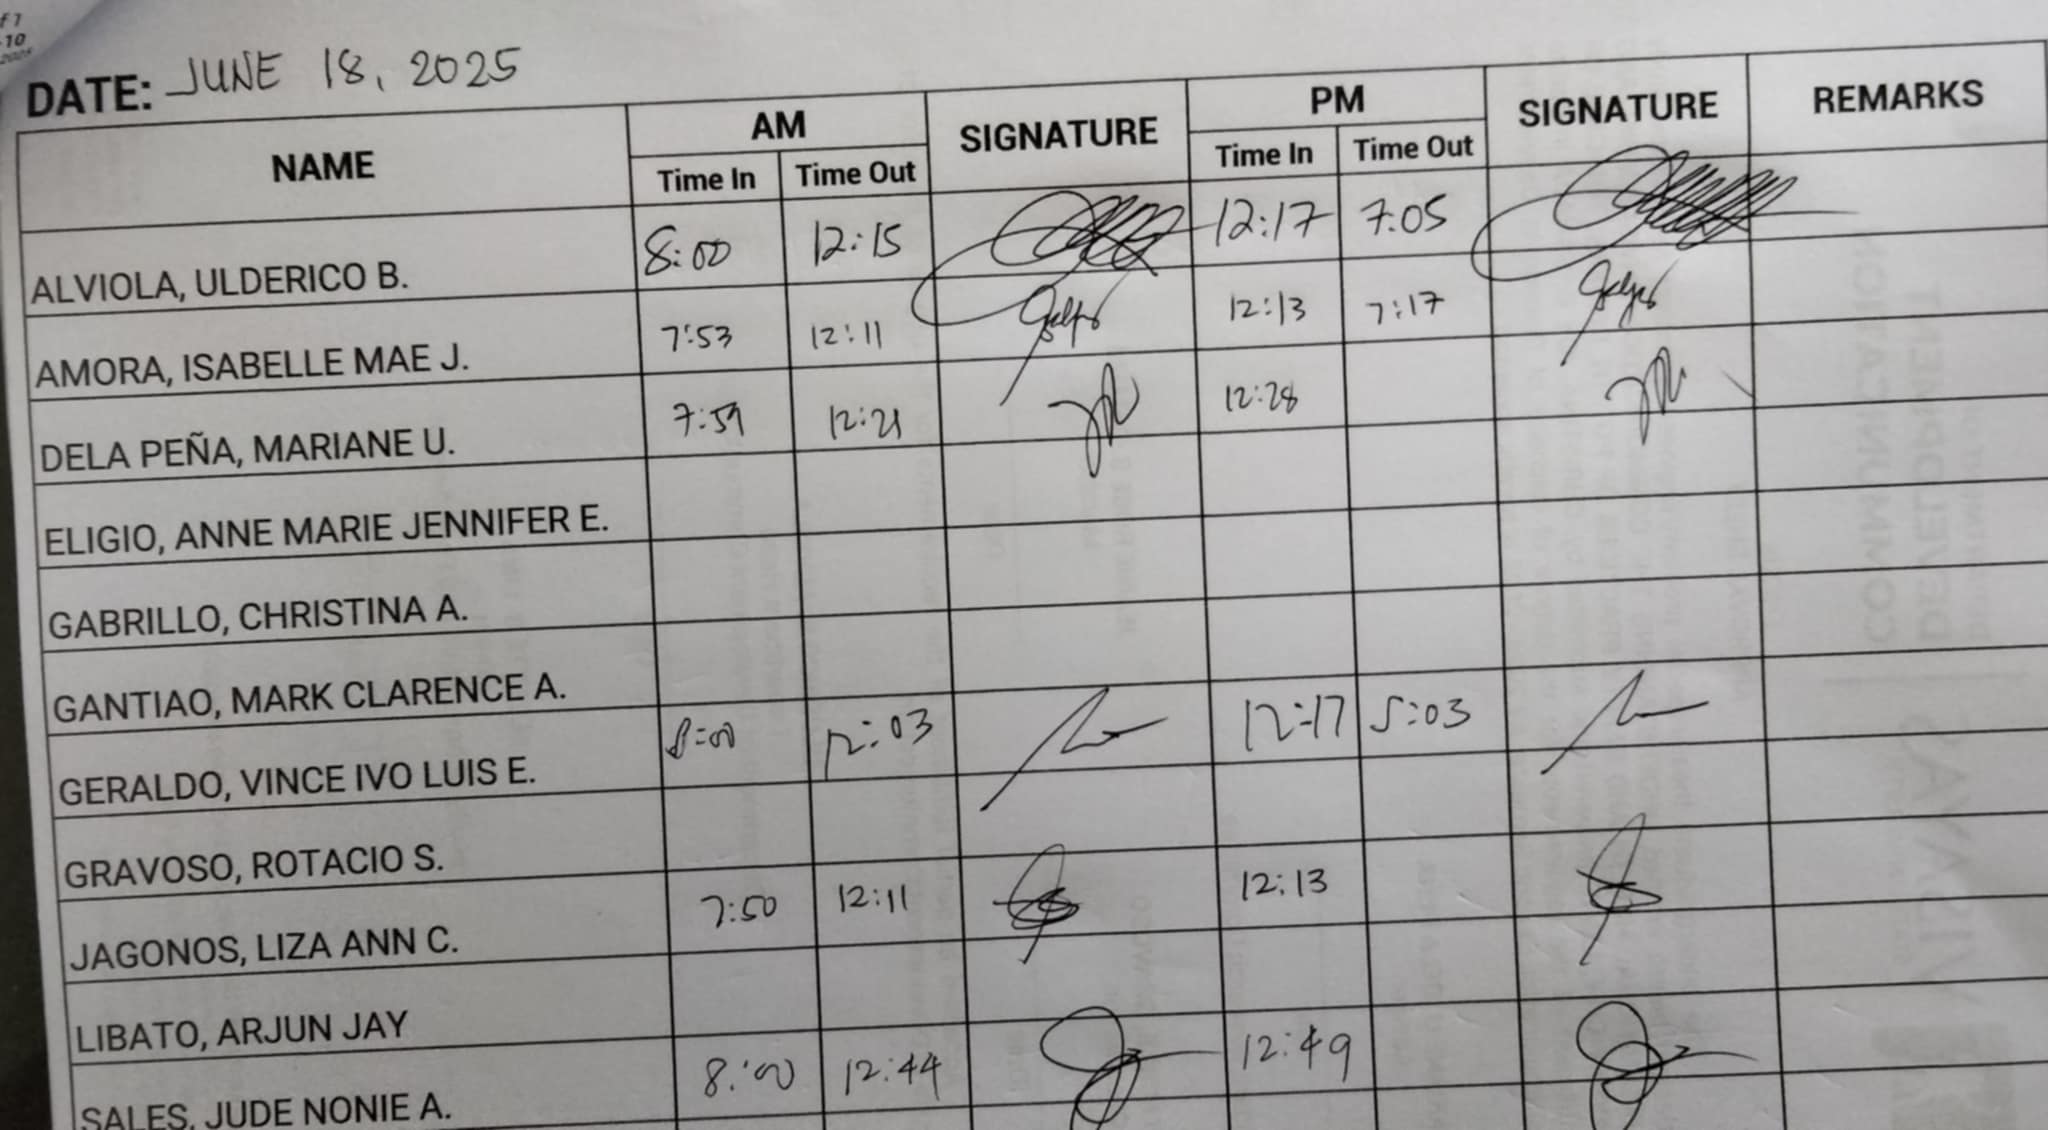 DATE: JUNE 18, 2025
NAME AM SIGNATURE PM SIGNATURE REMARKS
Time In Time Out Time In Time Out
ALVIOLA, ULDERICO B. 8:00 12:15 12:17 7:05
AMORA, ISABELLE MAE J. 7:53 12:11 12:13 7:17
DELA PEÑA, MARIANE U. 7:59 12:21 12:28
ELIGIO, ANNE MARIE JENNIFER E.
GABRILLO, CHRISTINA A.
GANTIAO, MARK CLARENCE A.
GERALDO, VINCE IVO LUIS E. 8:00 12:03 12:17 5:03
GRAVOSO, ROTACIO S.
JAGONOS, LIZA ANN C. 7:50 12:11 12:13
LIBATO, ARJUN JAY
SALES, JUDE NONIE A. 8:00 12:44 12:49